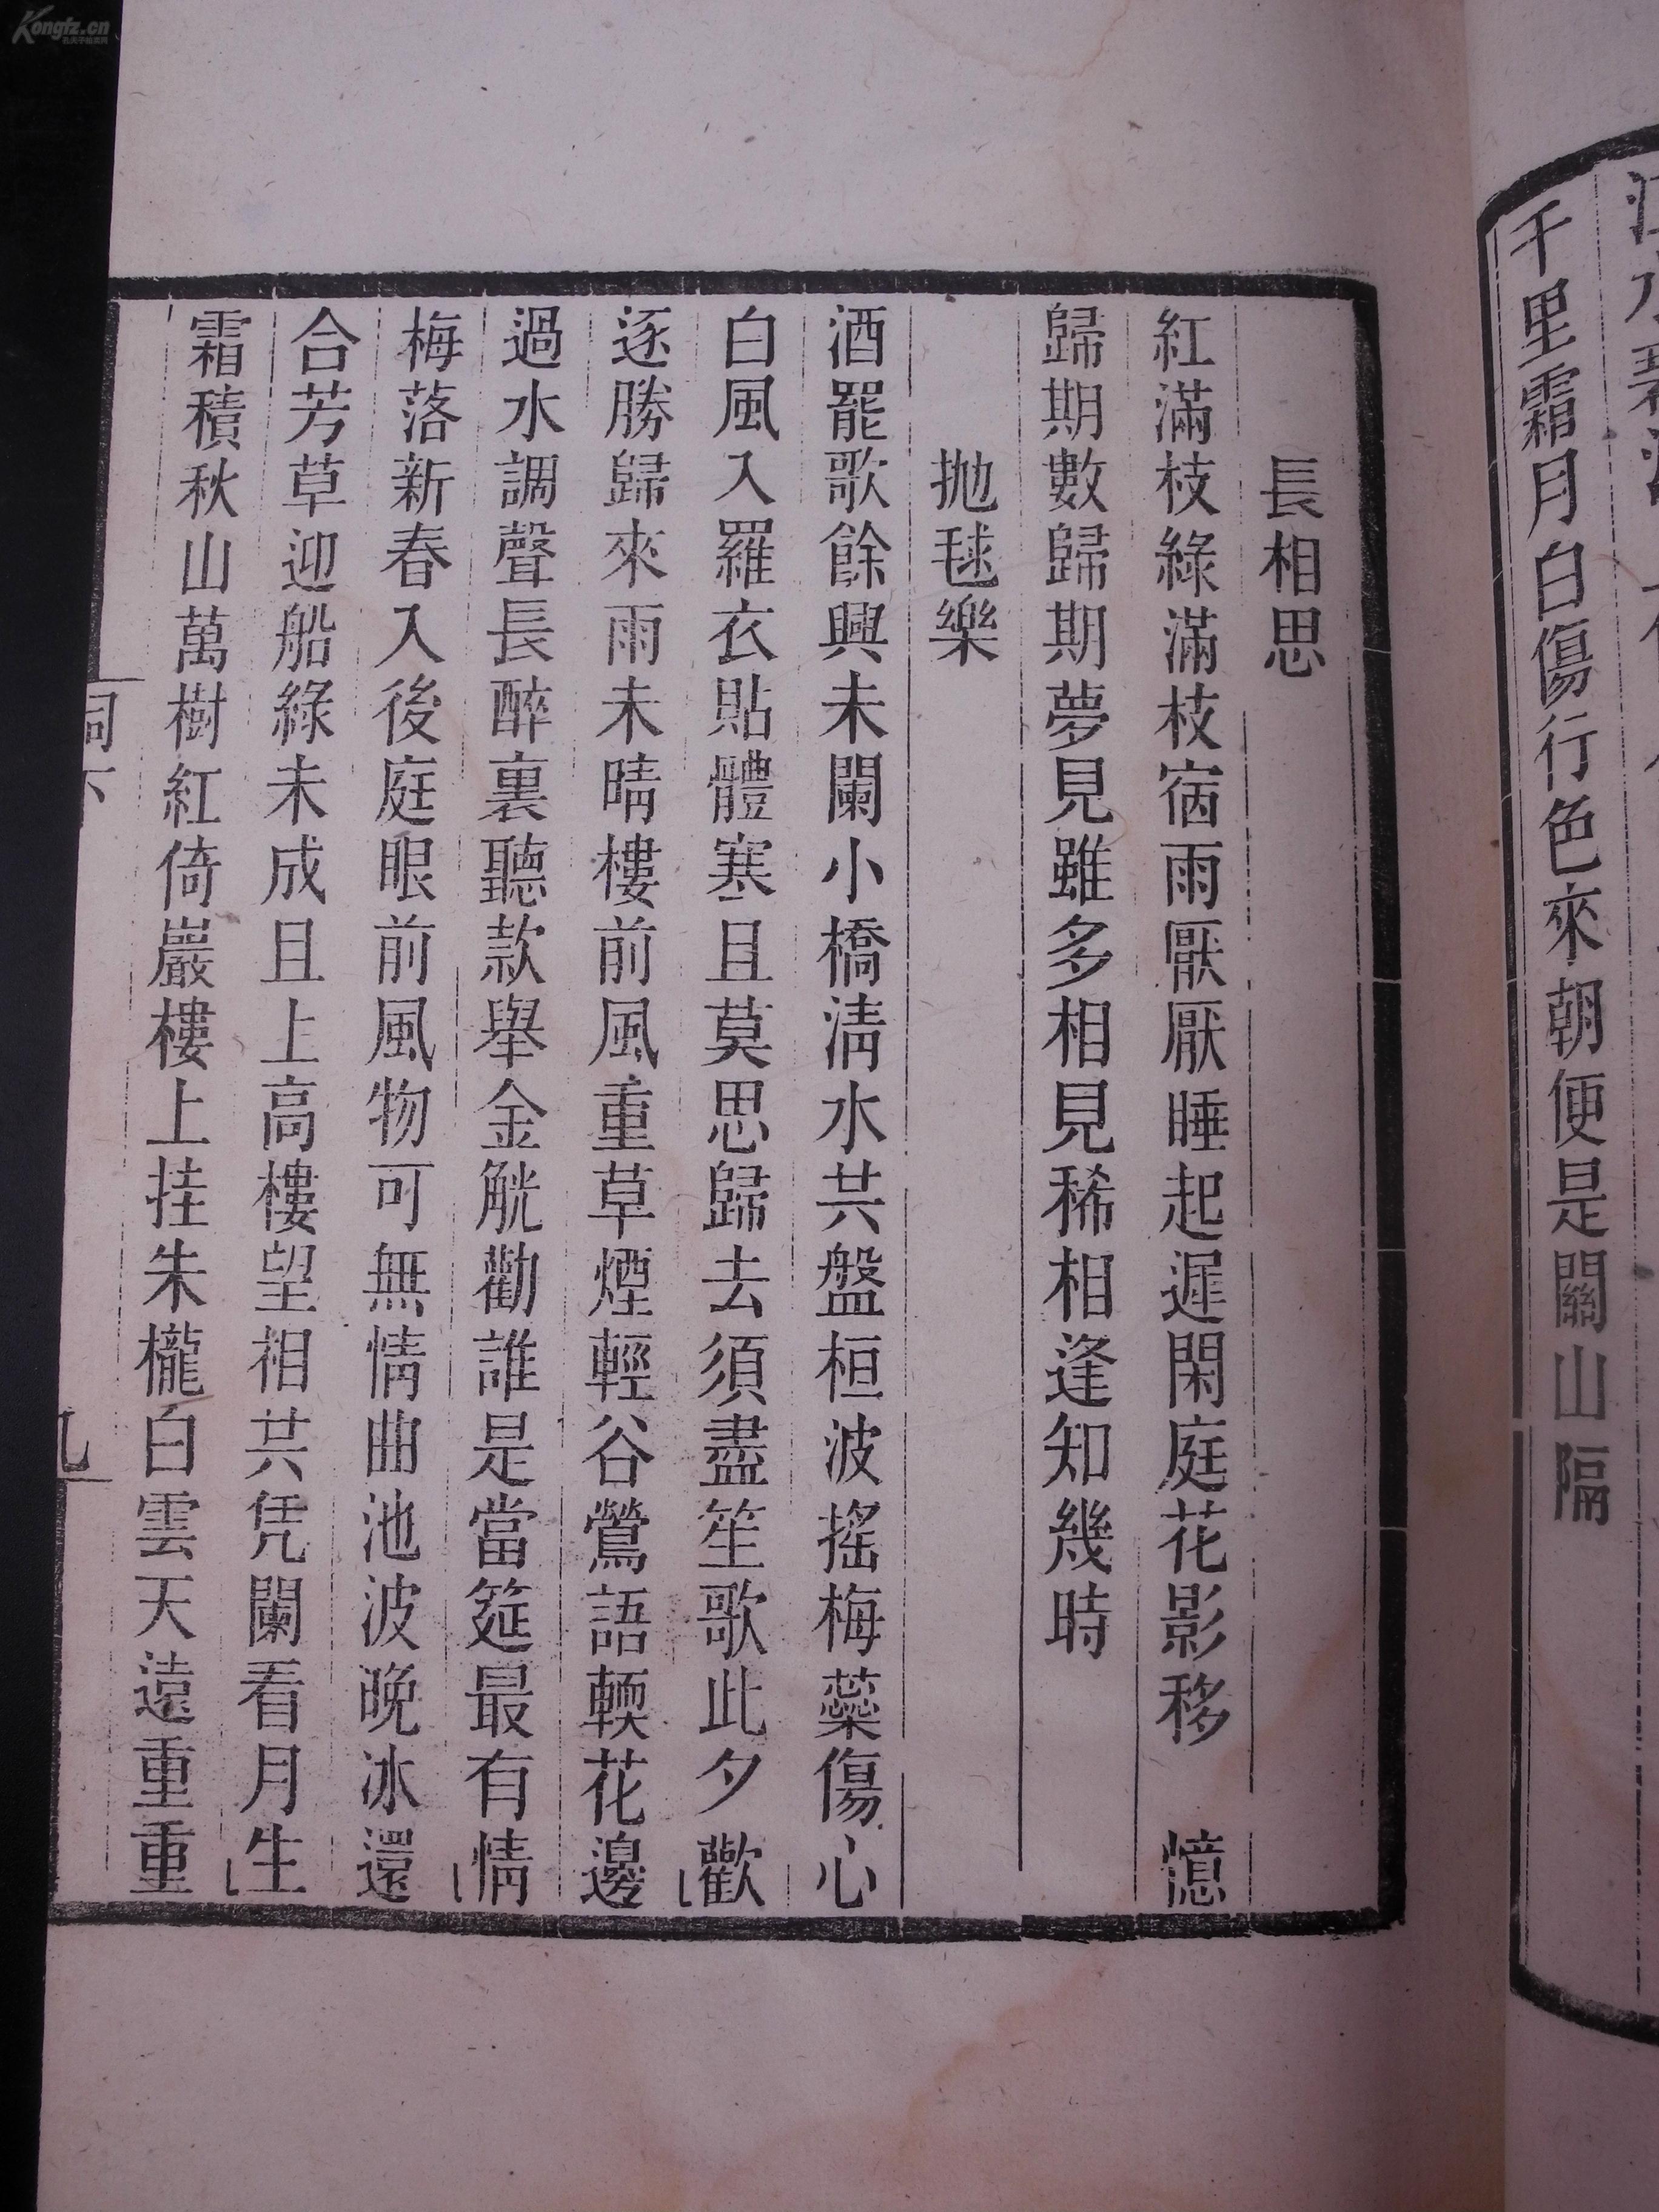 千里霜月白傷行色來朝便是關山隔
長相思
紅滿枝綠滿枝宿雨厭厭睡起遲閑庭花影移　憶
歸期數歸期夢見雖多相見稀相逢知幾時
拋毬樂
酒罷歌餘興未闌小橋淸水共盤桓波搖梅蘂傷心
白風入羅衣貼體寒且莫思歸去須盡笙歌此夕歡
逐勝歸來雨未晴樓前風重草煙輕谷鶯語輭花邊
過水調聲長醉裏聽款舉金觥勸誰是當筵最有情
梅落新春入後庭眼前風物可無情曲池波晚冰還
合芳草迎船綠未成且上高樓望相共凭闌看月生
霜積秋山萬樹紅倚巖樓上挂朱櫳白雲天遠重重
詞下
九
Kongfz.cn